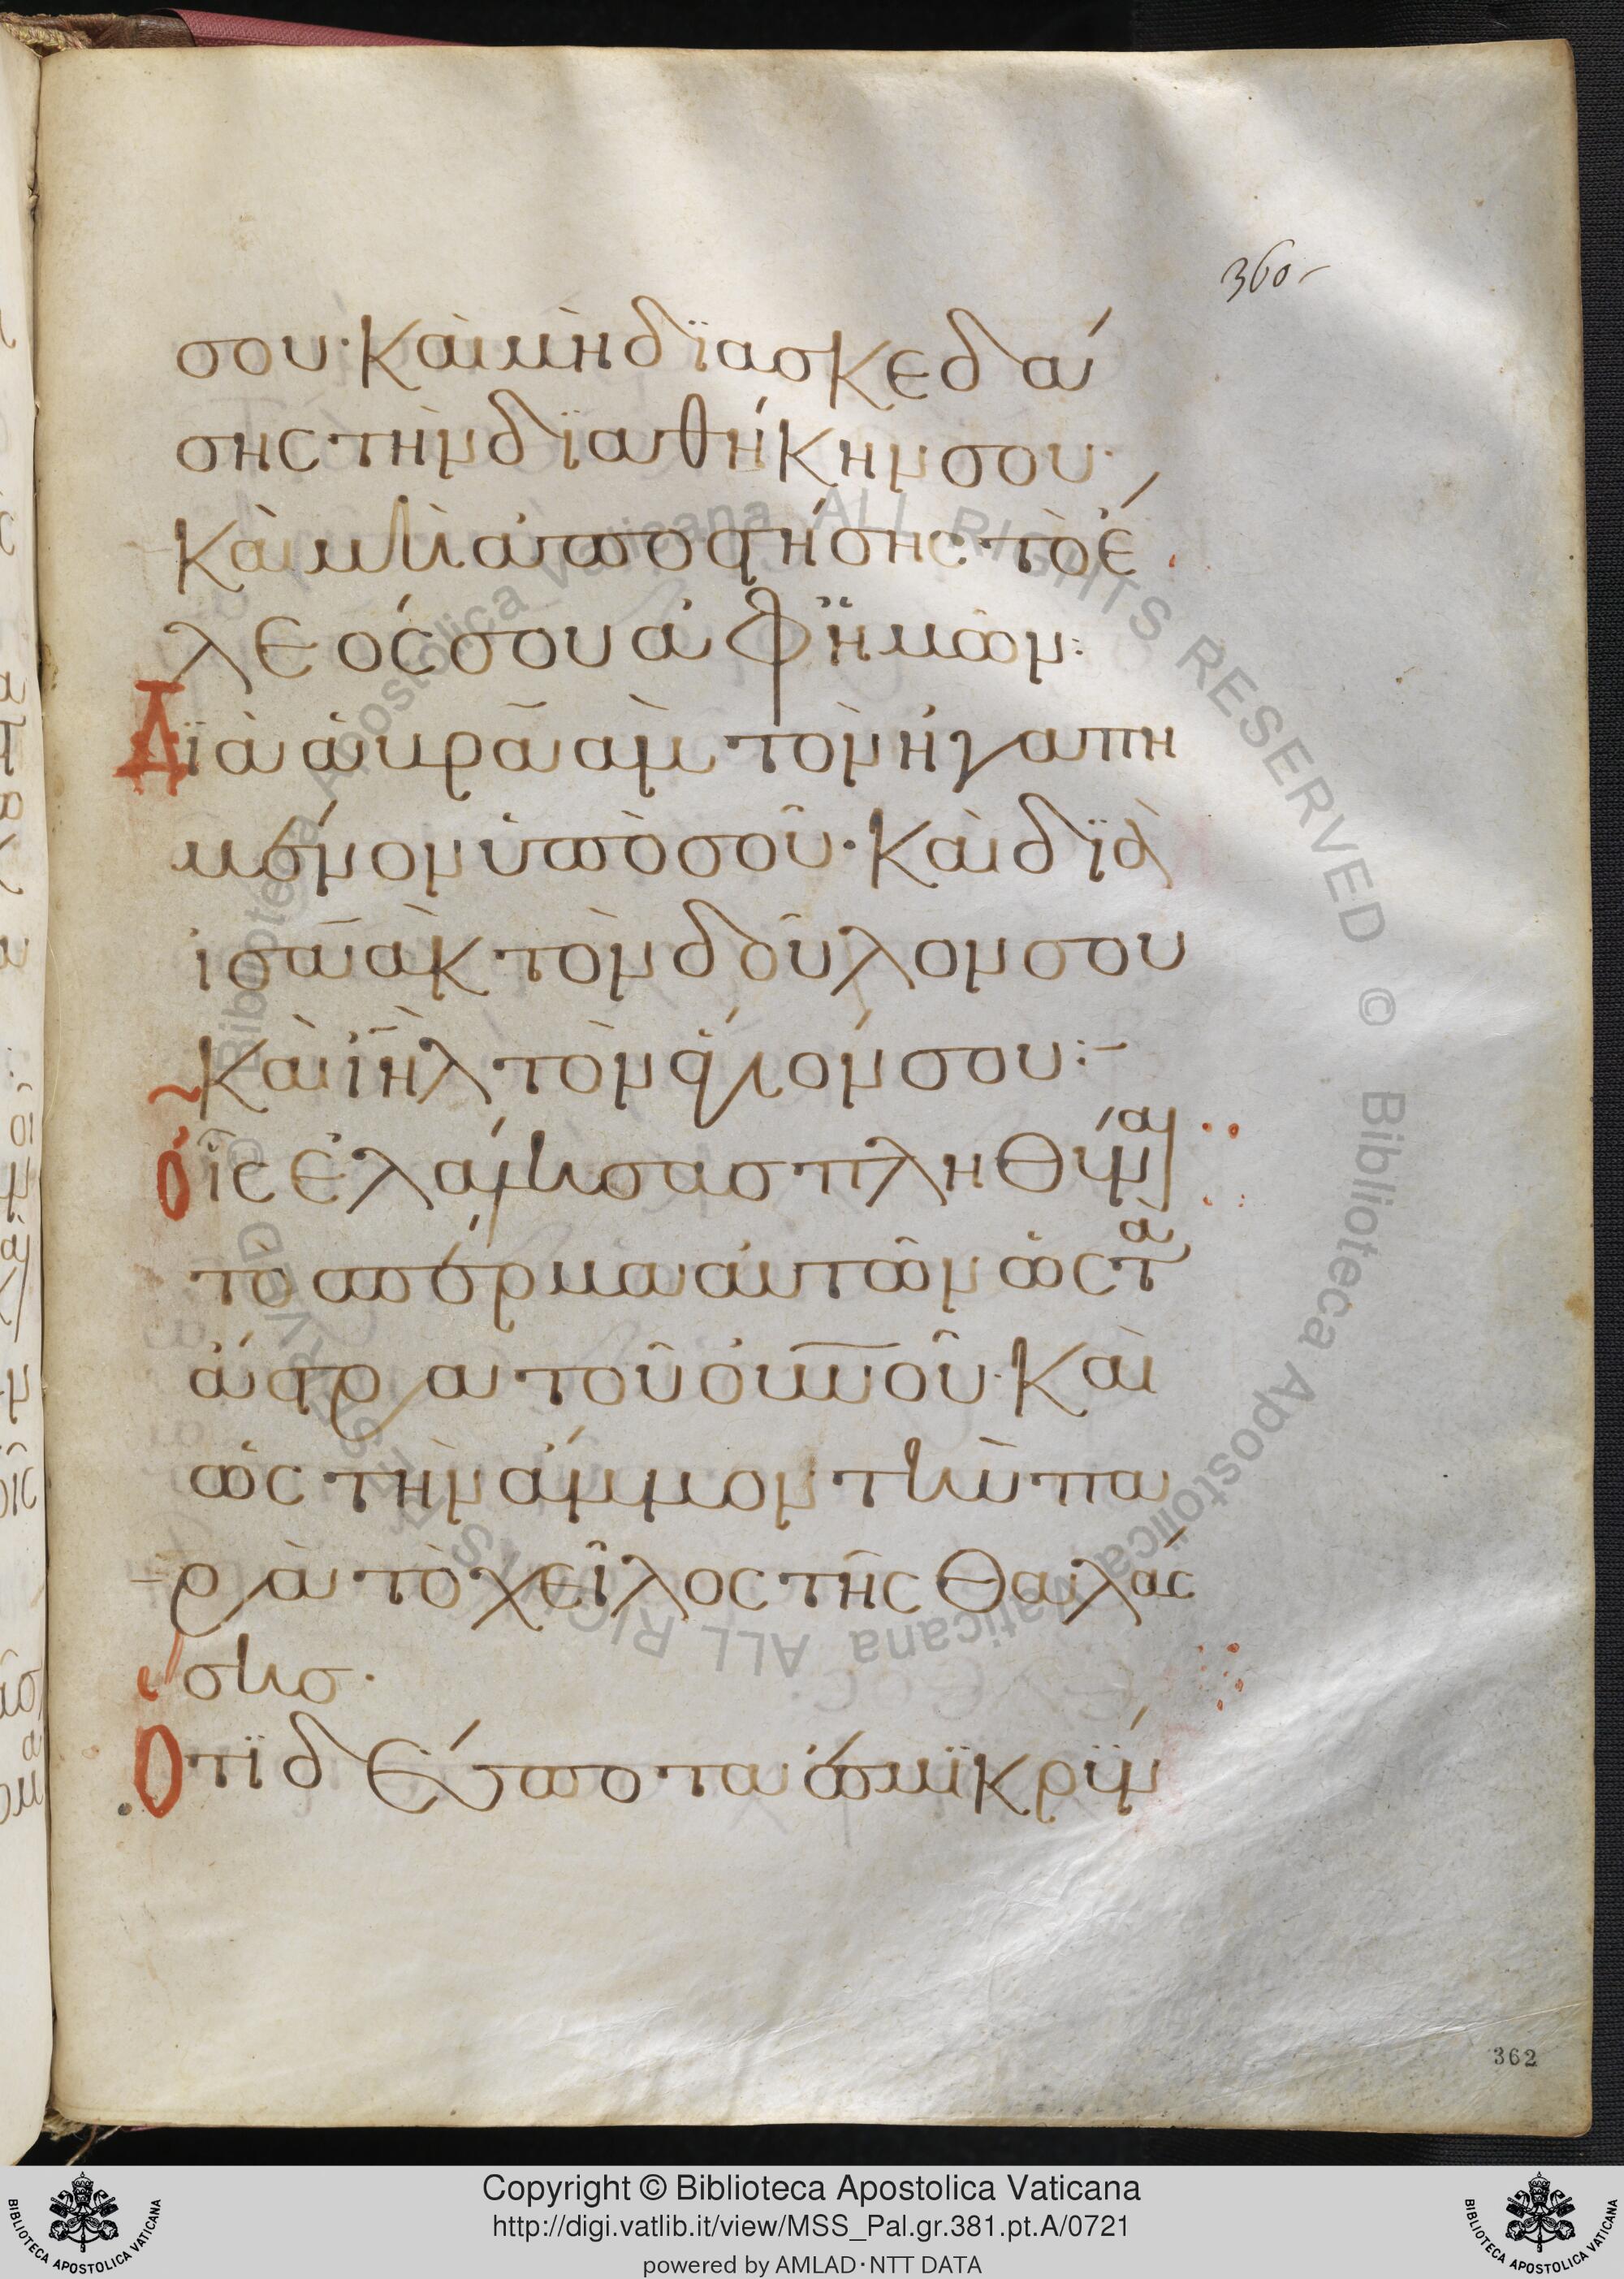 360
σου· Καὶ μὴ διασκεδά
σης τὴν διαθήκην σου·
Καὶ μὴ ἀποστήσης τὸ ἔ
λεός σου ἀφ ἡμῶν:
Διὰ ἀβραὰμ τὸν ἠγαπη
μένον ὑπὸ σοῦ· Καὶ διὰ
ἰσαὰκ τὸν δοῦλον σου
Καὶ ἰηλ τὸν ἅγιόν σου:–
Οἷς ἐλάλησας πληθύναι
τὸ σπέρμα αὐτῶν ὡς τὰ
ἄστρα τοῦ οὐνοῦ· Καὶ
ὡς τὴν ἄμμον τὴν πα
ρὰ τὸ χεῖλος τῆς θαλάσ
σης·
Ὅτι δέσποτα ἐσμικρύν
362
Biblioteca Apostolica Vaticana ALL RIGHTS RESERVED © Biblioteca Apostolica Vaticana ALL RIGHTS RESERVED ©
BIBLIOTECA APOSTOLICA VATICANA
Copyright © Biblioteca Apostolica Vaticana
http://digi.vatlib.it/view/MSS_Pal.gr.381.pt.A/0721
powered by AMLAD·NTT DATA
BIBLIOTECA APOSTOLICA VATICANA